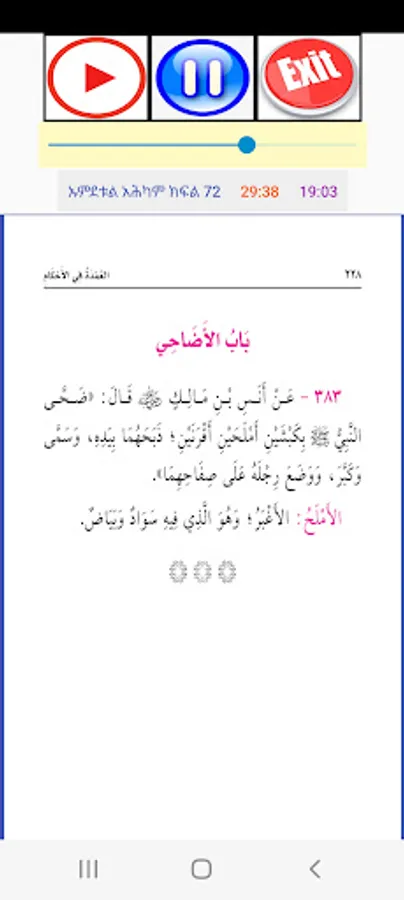 Exit
ኡምደቱል አሕካም ክፍል 72 29:38 19:03
٢٢٨ العُمْدَةُ فِي الأَحْكَامِ
بَابُ الأَضَاحِي
٣٨٣ - عَنْ أَنَسِ بْنِ مَالِكٍ ﷺ قَالَ: «ضَحَّى
النَّبِيُّ ﷺ بِكَبْشَيْنِ أَمْلَحَيْنِ أَقْرَنَيْنِ؛ ذَبَحَهُمَا بِيَدِهِ، وَسَمَّى
وَكَبَّرَ، وَوَضَعَ رِجْلَهُ عَلَى صِفَاحِهِمَا».
الأَمْلَحُ: الأَغْبَرُ؛ وَهُوَ الَّذِي فِيهِ سَوَادٌ وَبَيَاضٌ.